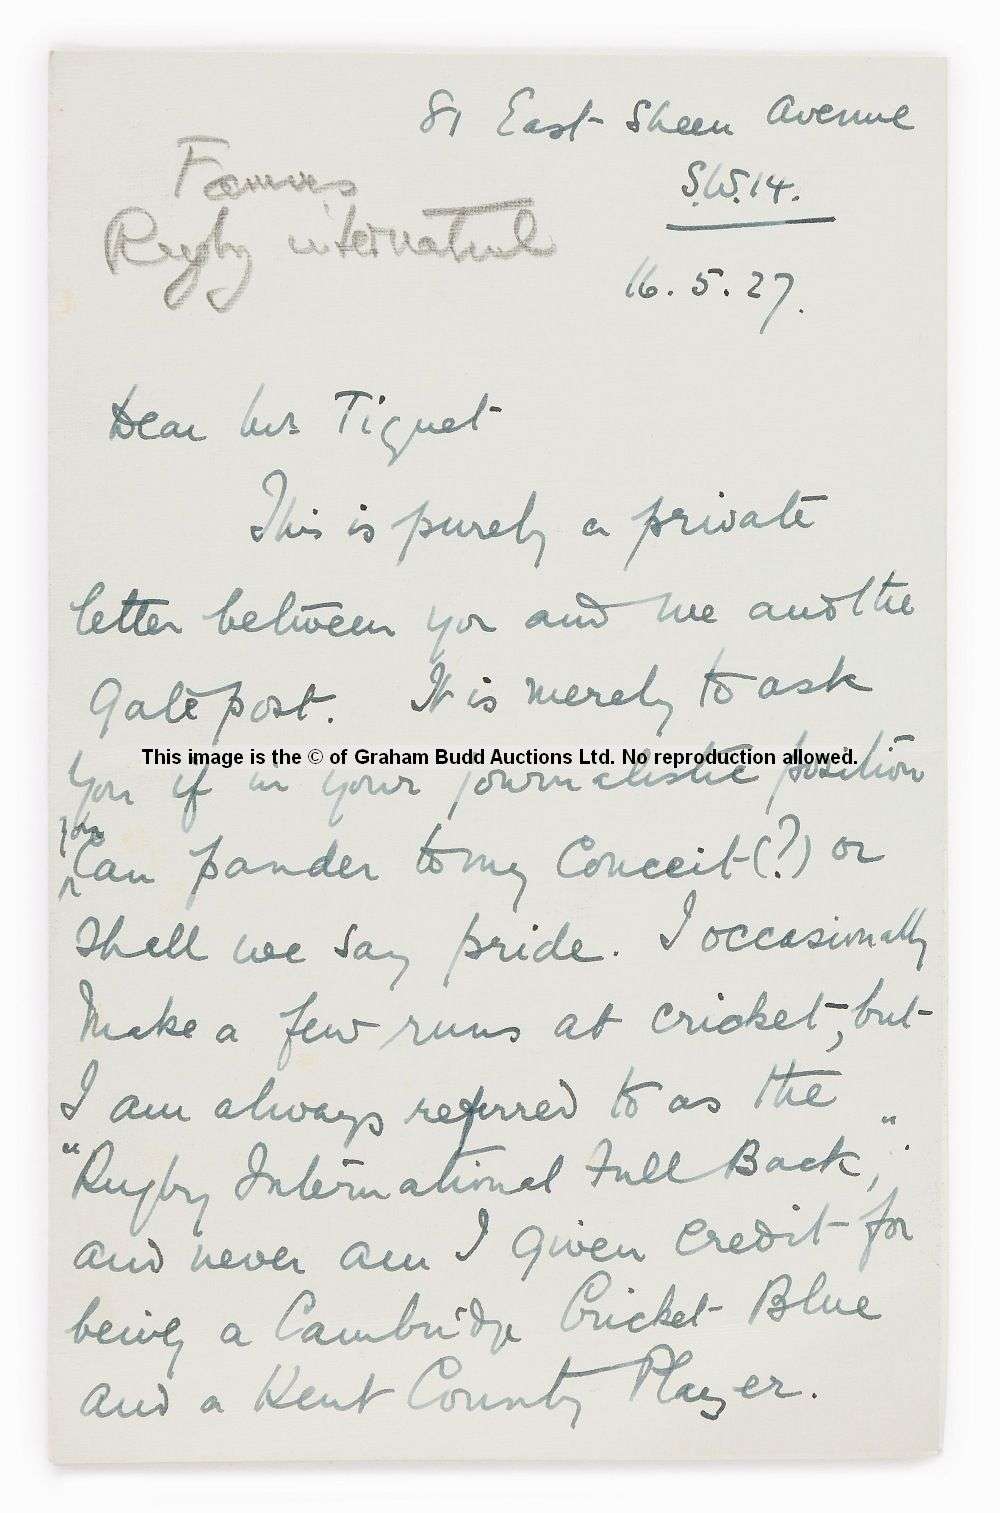 81 East Sheen Avenue
S.W.14.
Famous
Rugby international
16.5.27.
Dear Mr Tiquet
This is purely a private
letter between you and me and the
Gate post. It is merely to ask
you if in your journalistic position
you
can pander to my Conceit (?) or
Shall we say pride. I occasionally
Make a few runs at cricket, but
I am always referred to as the
"Rugby International Full Back,"
and never am I given credit for
being a Cambridge Cricket Blue
and a Kent County Player.
This image is the © of Graham Budd Auctions Ltd. No reproduction allowed.